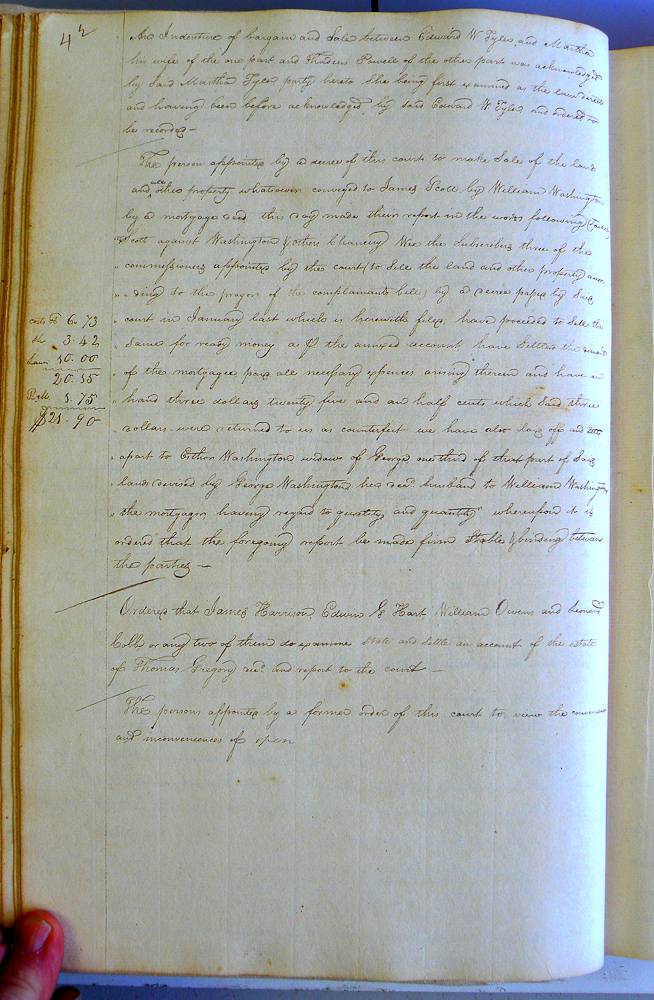 42
An Indenture of bargain and Sale between Edward W Tyler, and Martha
his wife of the one part and Powell of the other part was acknowledged
by Said Martha Tyler party hereto She being first examined as the law directs
and having been before acknowledged by said Edward W Tyler and ordered to
be recorded —
The person appointed by a decree of this court to make Sale of the land
and all other property whatsoever conveyed to James Scott by William Washington
by a mortgage deed this day made their report in the words following
Scott against Washington & others Chancery Wee the Subscribers three of the
" commissioners appointed by the court to Sell the land and other property accor
" ding to the prayer of the complainants bill, by a decree passed by Said
" court in January last which is herewith filed, have proceeded to Sell the
" Same for ready money as the annexed account have Settled the
" of the mortgagee paid all necessary expences arising therein and have in
" hand three dollars twenty five and an half cents which Said three
" dollars were returned to us as counterfeit we have also laid off and
" apart to Washington widow of George one third of that part of Said
" land devised by George Washington her decd. husband to William Washington
" the mortgagor having regard to quality and quantity" whereupon it is
ordered that the foregoing report be made firm Stable & binding between
the parties —
costs 6.73
3.42
10.00
20.15
1.75
$21.90
Ordered that James Harrison, Edwin G Hart William Owens and
Cobb or any two of them do examine State and Settle an account of the estate
of Thomas Gregory decd. and report to the court —
The persons appointed by a former order of this court to view the
and inconveniences of open